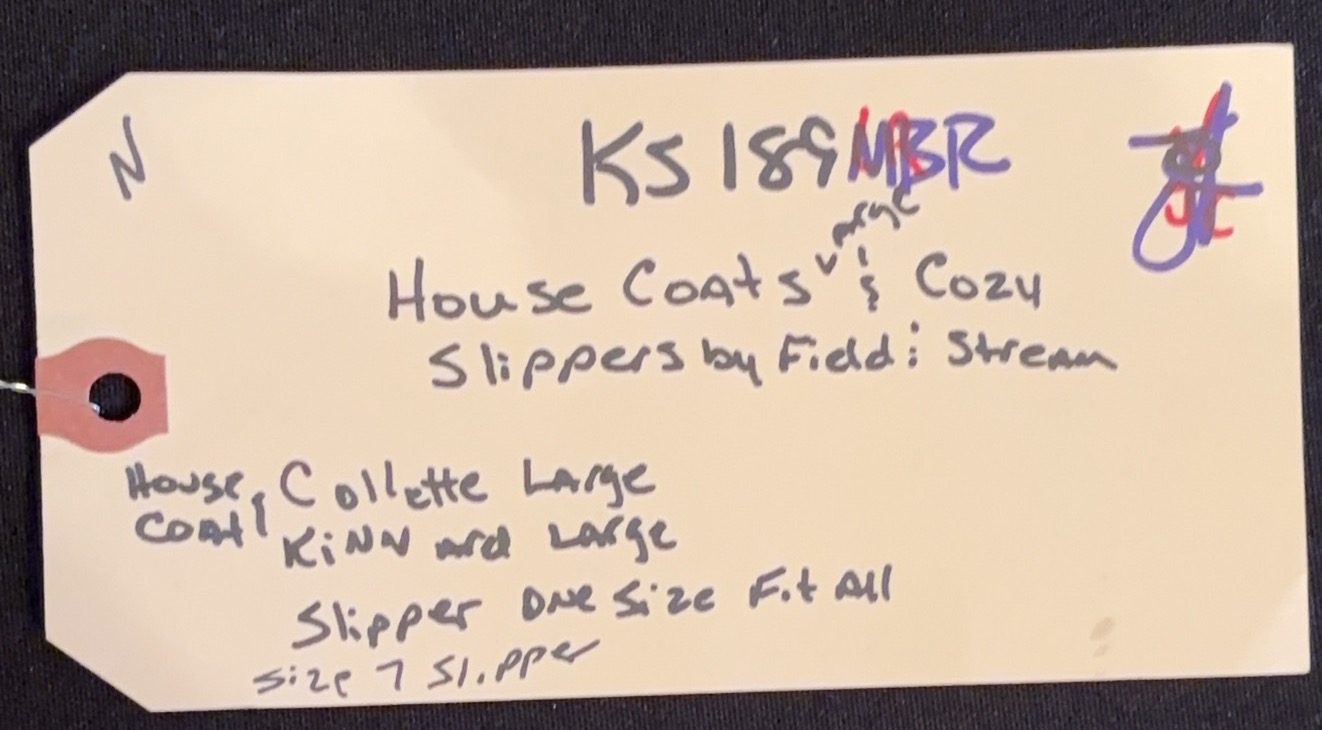 N
KS 189 MBR
Large
House Coats & Cozy
Slippers by Field & Stream
House Coat Collette Large
Kinnard Large
Slipper One Size Fit All
Size 7 Slipper